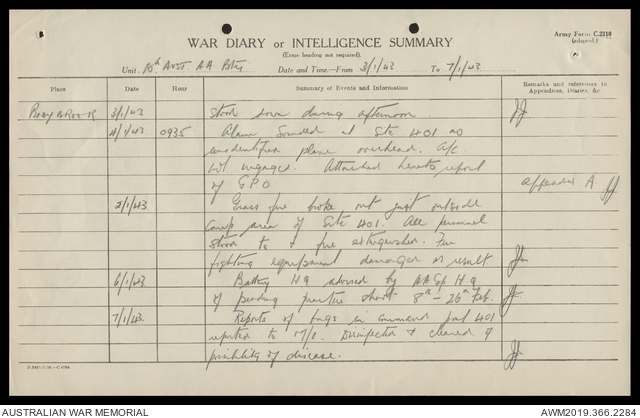 Army Form C.2118
(adapted.)
WAR DIARY or INTELLIGENCE SUMMARY
(Erase heading not required).
Unit Aust A A Bty Date and Time—From 3/1/43 To 7/1/43
Place Date Hour Summary of Events and Information Remarks and references to Appendices, Diaries, &c
3/1/43 Stood down during afternoon.
4/1/43 0935 Alarm Sounded at Site 401 as
unidentified plane overhead. A/c
not engaged. Attached hereto report
of G.P.O. appendix A
5/1/43 Grass fire broke out just outside
camp area of Site 401. All personnel
stood to & fire extinguished. Fire
fighting equipment damaged as result
6/1/43 Battery HQ advised by AA Gp HQ
of pending practice shoot 8th - 26th Feb.
7/1/43 Reports of bugs in command post 401
reported to M/O. Disinfected & cleared of
possibility of disease.
AUSTRALIAN WAR MEMORIAL AWM2019.366.2284